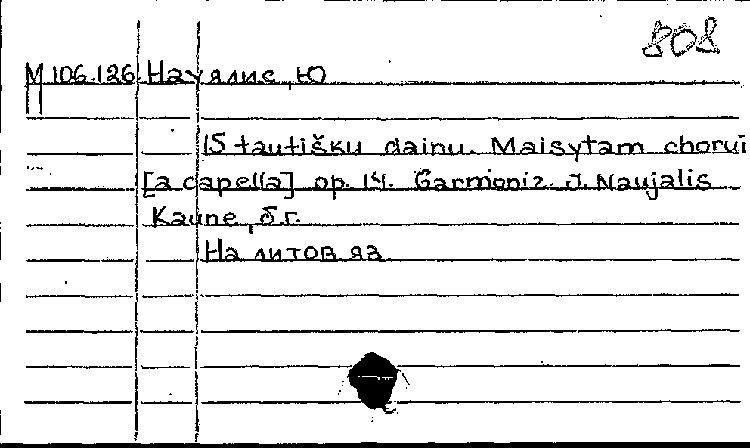 808
М 106.126 Наулис, Ю
15 tautišku dainu. Maisytam chorui
[a capella] op. 14. Garmoniz. J. Naujalis
Kaune, б.г.
На литов яз